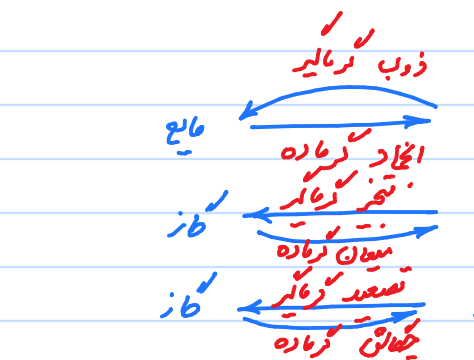 ذوب گرماگیر
مایع
انجماد گرماده
تبخیر گرماگیر
گاز
میعان گرماده
تصعید گرماگیر
گاز
چگالش گرماده